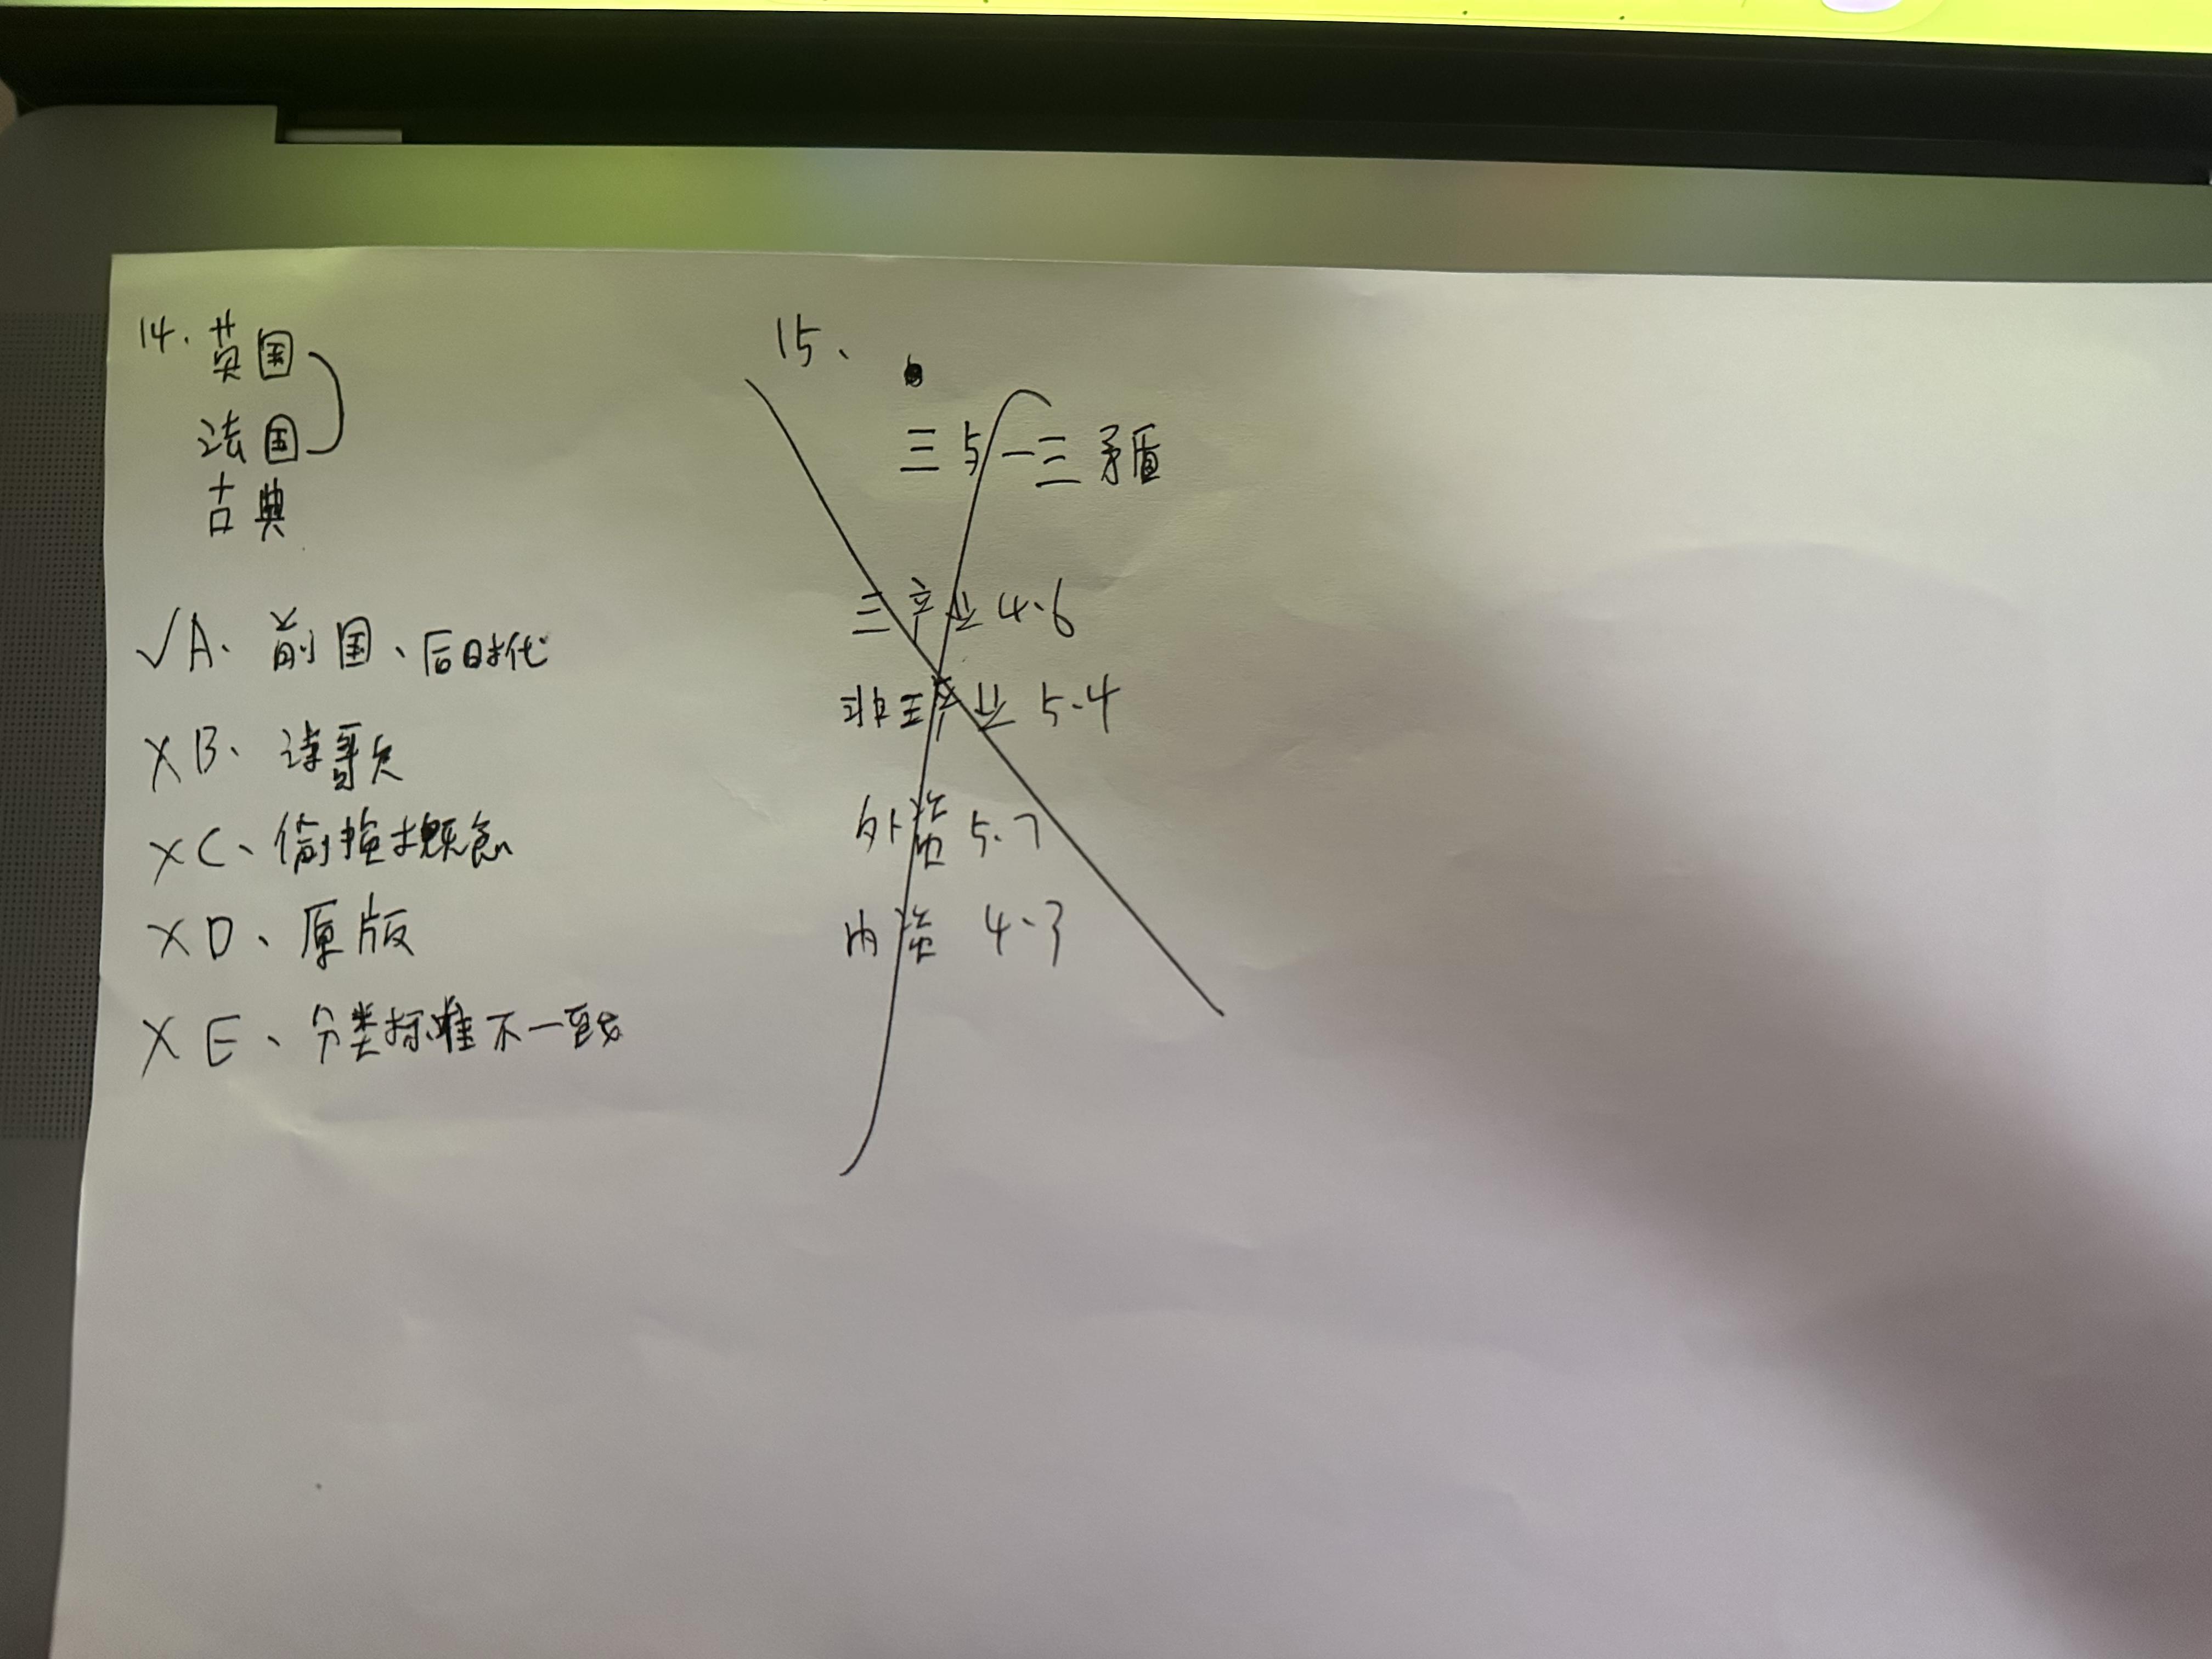 14. 英国
法国
古典
√A、前国、后时代
×B、诗歌
×C、偷换概念
×D、原版
×E、分类标准不一致
15、
三与一三矛盾
三产业4.6
非三产业5.4
外资5.7
内资4.3